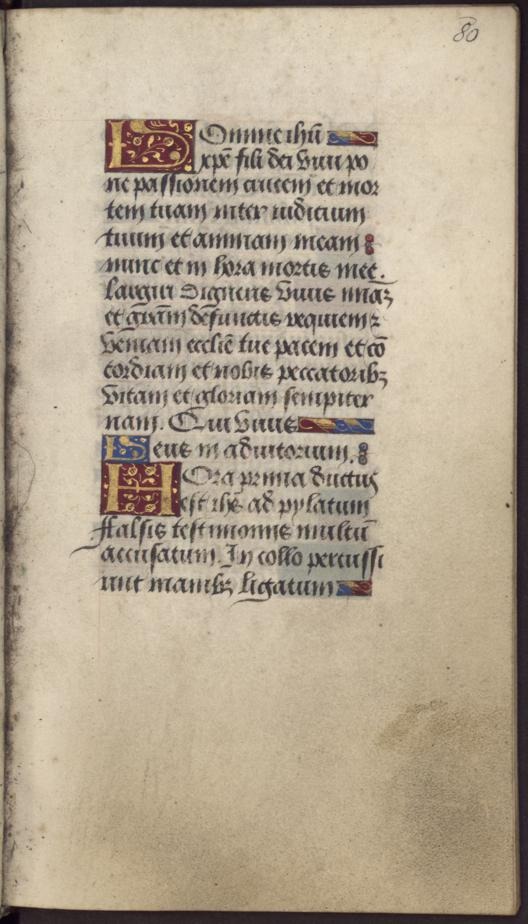 80
Domine ihū
xpē fili dei viui po
ne passionem crucem et mor
tem tuam inter iudicium
tuum et animam meam
nunc et in hora mortis meę.
largiri digneris viuis miāꝫ
et grām defunctis requiem ꝛ
veniam ecclīe tue pacem et cō
cordiam et nobis peccatoribꝫ
vitam et gloriam sempiter
nam. Qui viuis
Deus in adiutorium.
Hora prima ductus
est ihs̄ ad pylatum
ffalsis testimoniis multū
accusatum. In collo percussi
unt manibꝫ ligatum